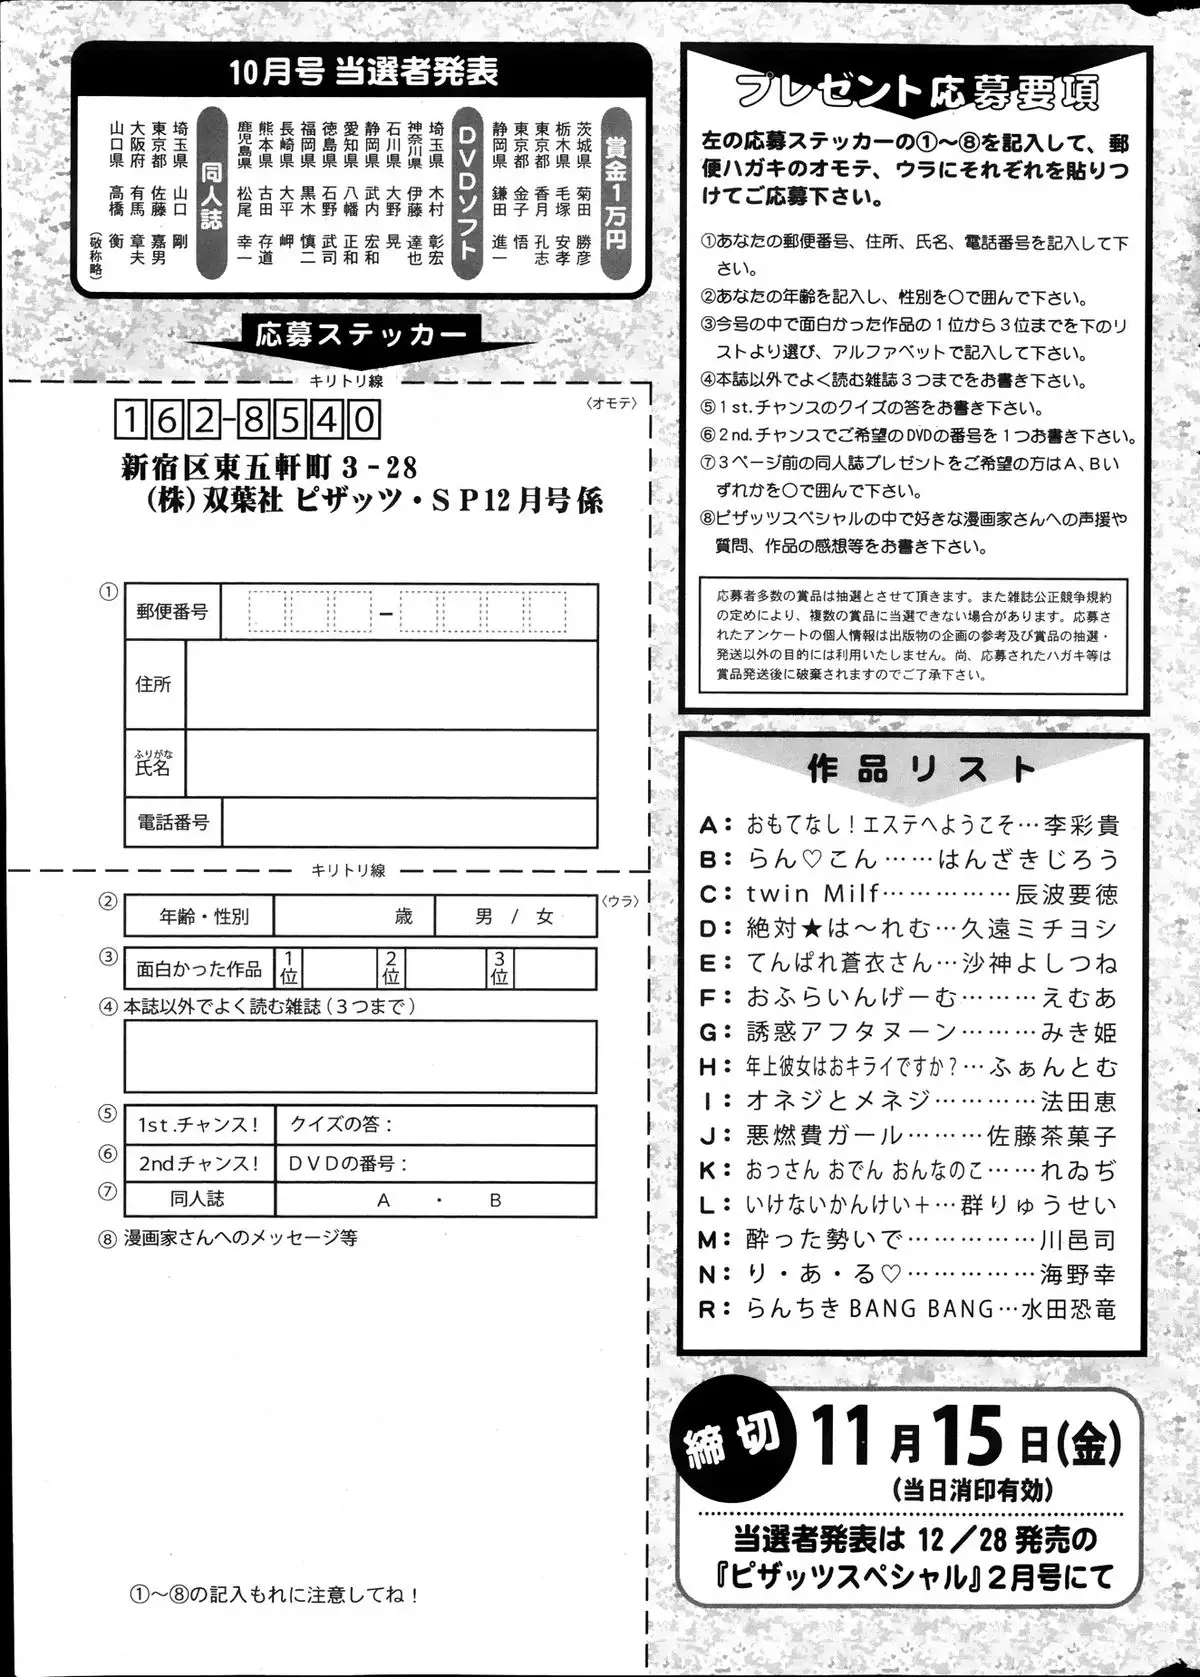 10月号 当選者発表
賞金1万円
茨城県 菊田 勝彦
栃木県 毛塚 安孝
東京都 香月 孔志
東京都 金子 悟
静岡県 鎌田 進一
DVDソフト
埼玉県 木村 彰宏
神奈川県 伊藤 達也
石川県 大野 晃
静岡県 武内 宏和
愛知県 八幡 正和
徳島県 石野 武司
福岡県 黒木 慎二
長崎県 大平 岬
熊本県 古田 存道
鹿児島県 松尾 幸一
同人誌
埼玉県 山口 剛
東京都 佐藤 嘉男
大阪府 有馬 章夫
山口県 高橋 衡
(敬称略)
応募ステッカー
キリトリ線
〈オモテ〉
162-8540
新宿区東五軒町3-28
(株)双葉社 ピザッツ・SP12月号係
① 郵便番号
住所
ふりがな
氏名
電話番号
キリトリ線
〈ウラ〉
② 年齢・性別 歳 男 / 女
③ 面白かった作品 1位 2位 3位
④ 本誌以外でよく読む雑誌(3つまで)
⑤ 1st.チャンス! クイズの答:
⑥ 2nd.チャンス! DVDの番号:
⑦ 同人誌 A ・ B
⑧ 漫画家さんへのメッセージ等
①〜⑧の記入もれに注意してね!
プレゼント応募要項
左の応募ステッカーの①〜⑧を記入して、郵
便ハガキのオモテ、ウラにそれぞれを貼りつ
けてご応募下さい。
①あなたの郵便番号、住所、氏名、電話番号を記入して下
さい。
②あなたの年齢を記入し、性別を○で囲んで下さい。
③今号の中で面白かった作品の1位から3位までを下のリ
ストより選び、アルファベットで記入して下さい。
④本誌以外でよく読む雑誌3つまでをお書き下さい。
⑤1st.チャンスのクイズの答をお書き下さい。
⑥2nd.チャンスでご希望のDVDの番号を1つお書き下さい。
⑦3ページ前の同人誌プレゼントをご希望の方はA、Bい
ずれかを○で囲んで下さい。
⑧ピザッツスペシャルの中で好きな漫画家さんへの声援や
質問、作品の感想等をお書き下さい。
応募者多数の賞品は抽選とさせて頂きます。また雑誌公正競争規約
の定めにより、複数の賞品に当選できない場合があります。応募さ
れたアンケートの個人情報は出版物の企画の参考及び賞品の抽選・
発送以外の目的には利用いたしません。尚、応募されたハガキ等は
賞品発送後に破棄されますのでご了承下さい。
作品リスト
A:おもてなし!エステへようこそ…李彩貴
B:らん♡こん……はんざきじろう
C:twin Milf……………辰波要徳
D:絶対★は〜れむ…久遠ミチヨシ
E:てんぱれ蒼衣さん…沙神よしつね
F:おふらいんげーむ………えむあ
G:誘惑アフタヌーン………みき姫
H:年上彼女はおキライですか?…ふぁんとむ
I:オネジとメネジ…………法田恵
J:悪燃費ガール………佐藤茶菓子
K:おっさん おでん おんなのこ…れゐぢ
L:いけないかんけい+…群りゅうせい
M:酔った勢いで……………川邑司
N:り・あ・る♡……………海野幸
R:らんちき BANG BANG…水田恐竜
締切
11月15日(金)
(当日消印有効)
当選者発表は 12/28 発売の
『ピザッツスペシャル』2月号にて